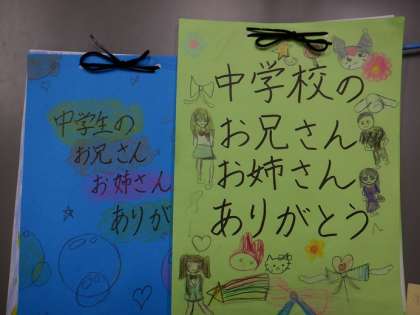 中学生の
お兄さん
お姉さん
ありが
中学校の
お兄さん
お姉さん
ありがとう